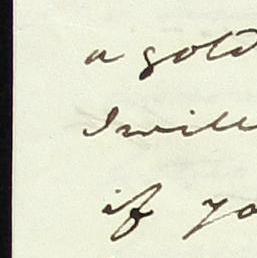 a gold
I will
if yo